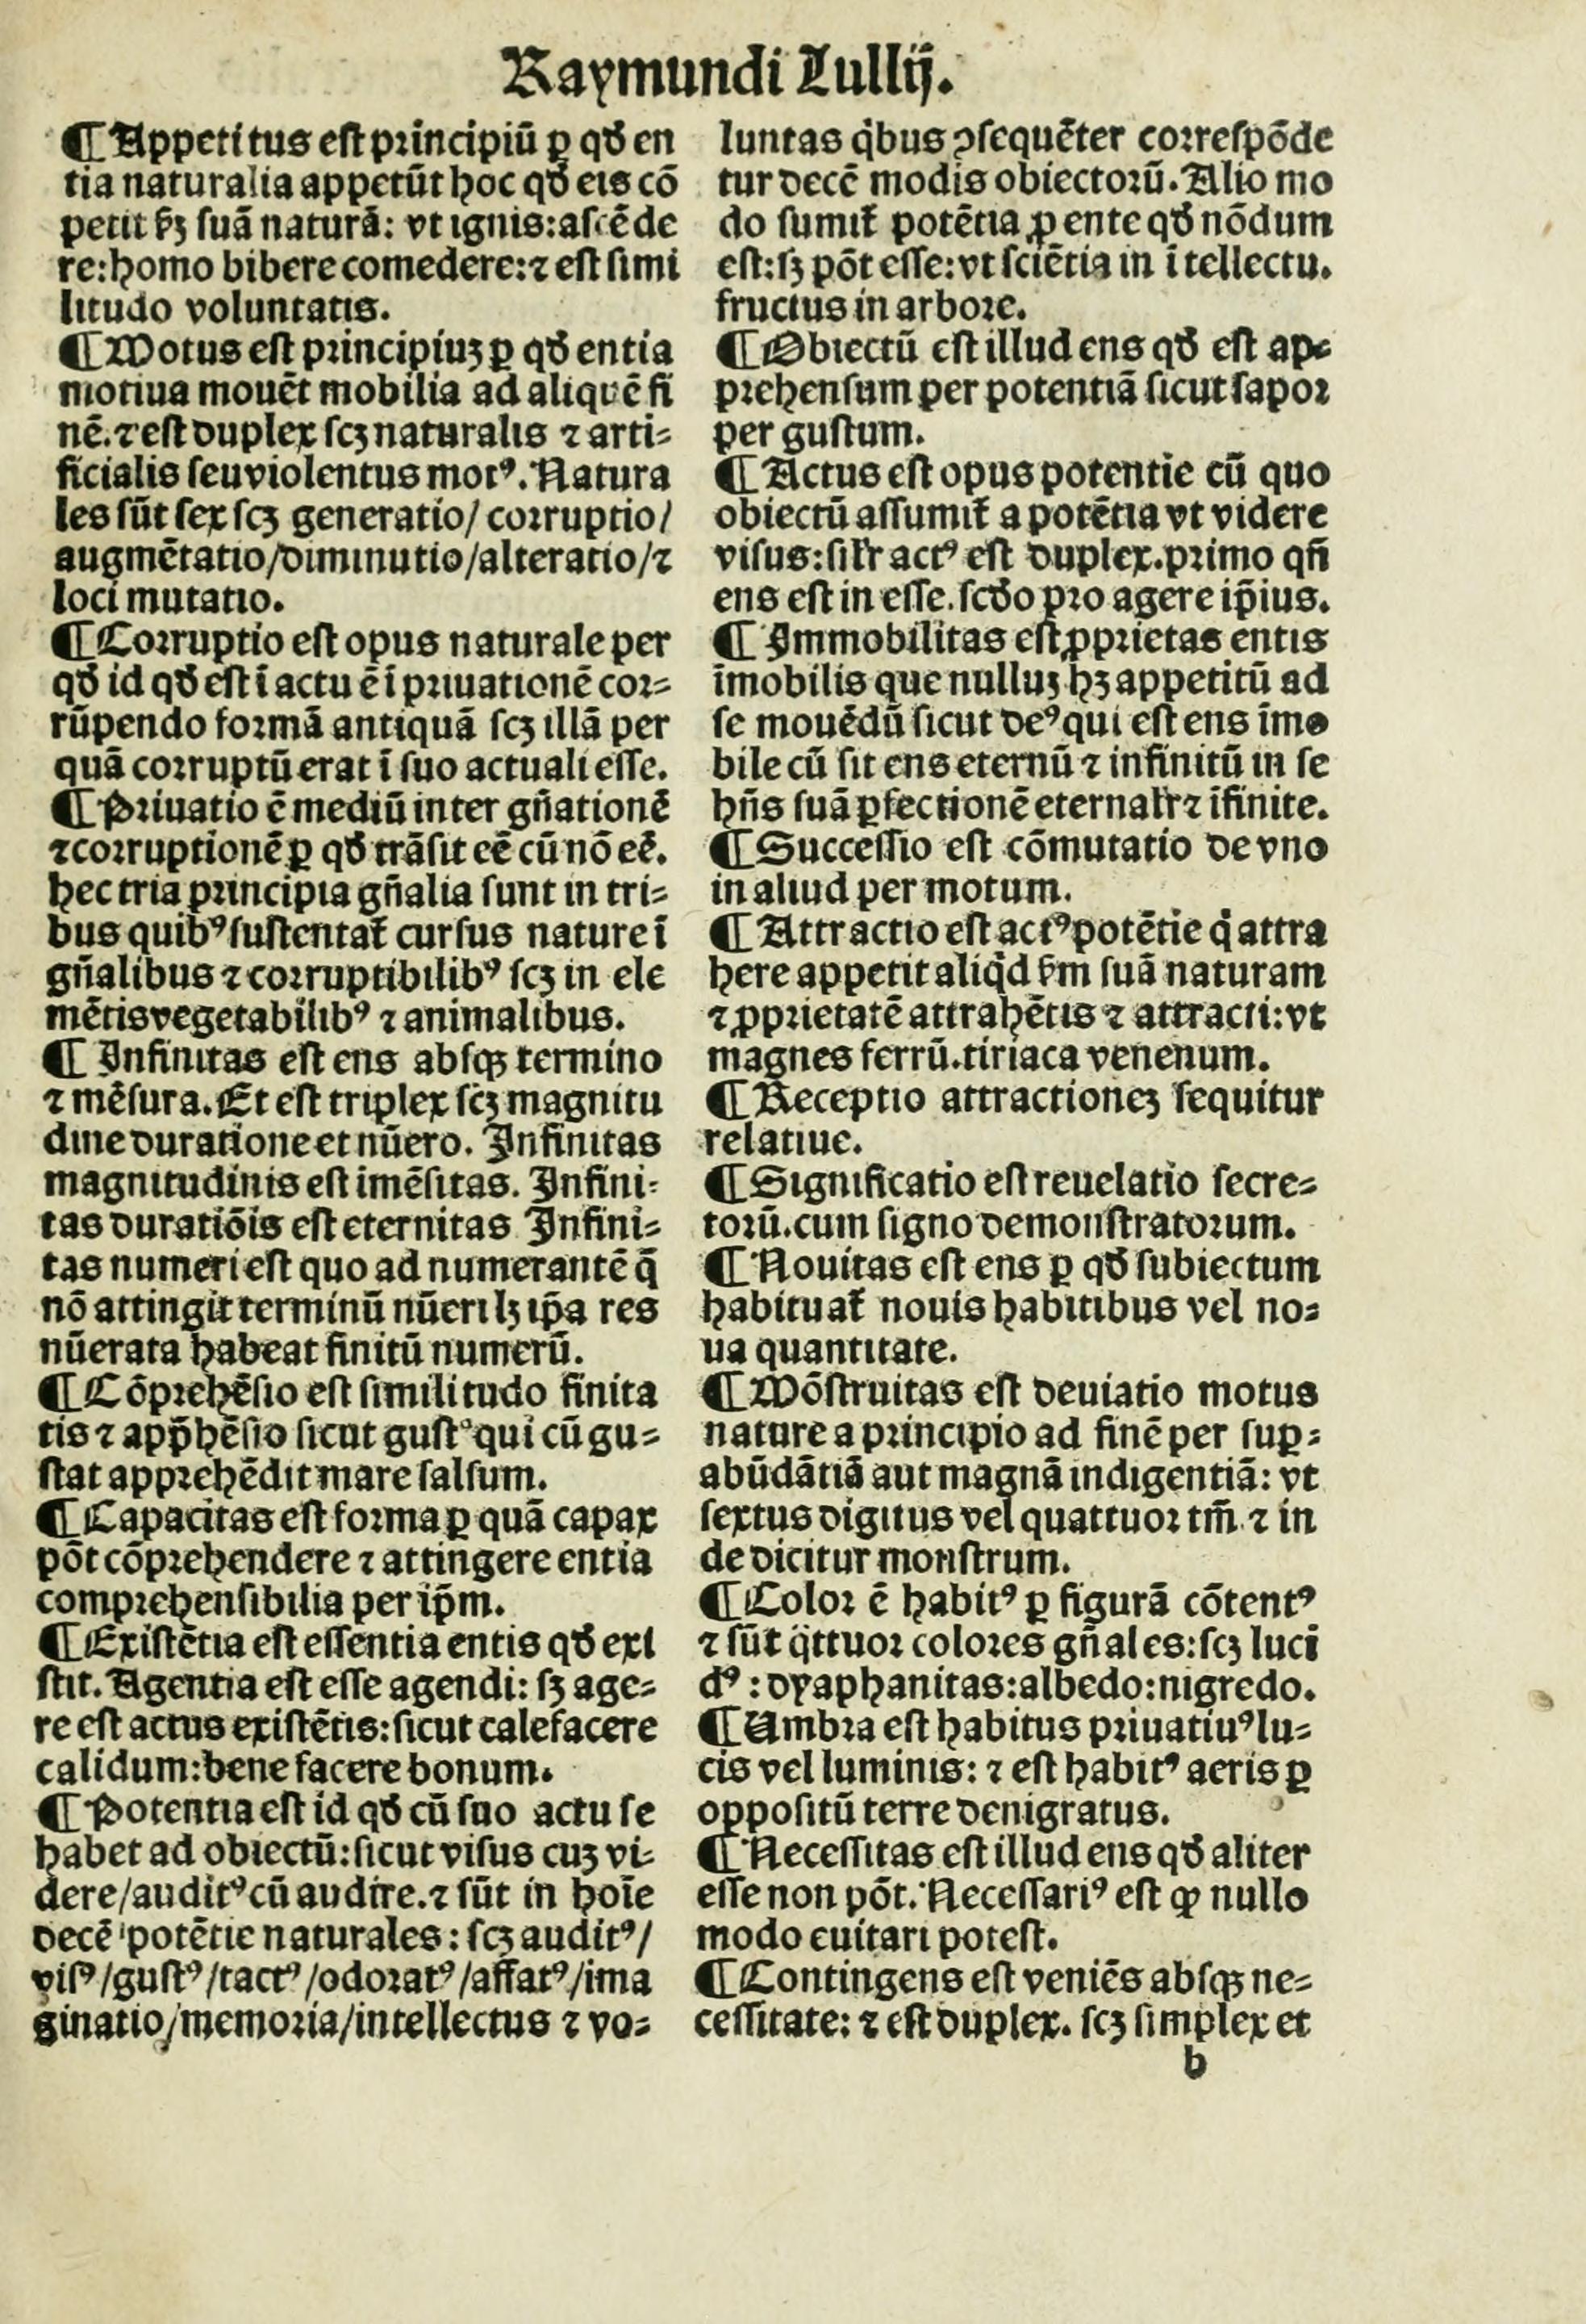 Raymundi Lullij.
¶ Appetitus eſt principiū ꝑ qđ en
tia naturalia appetūt hoc qđ eis cō
petit ẜꝫ ſuā naturā: vt ignis: aſcēde
re: homo bibere comedere: ⁊ eſt ſimi
litudo voluntatis.
¶ Motus eſt principiuꝫ ꝑ qđ entia
motiua mouēt mobilia ad aliquē fi
nē. ⁊ eſt duplex ſcꝫ naturalis ⁊ arti⸗
ficialis ſeu violentus motꝰ. Natura
les ſūt ſex ſcꝫ generatio/ corruptio/
augmētatio/diminutio/alteratio/⁊
loci mutatio.
¶ Corruptio eſt opus naturale per
qđ id qđ eſt ī actu ē ī priuationē cor⸗
rūpendo formā antiquā ſcꝫ illā per
quā corruptū erat ī ſuo actuali eſſe.
¶ Priuatio ē mediū inter gn̄ationē
⁊ corruptionē ꝑ qđ trāſit eē cū nō eē.
hec tria principia gn̄alia ſunt in tri⸗
bus quibꝰ ſuſtentat᷑ curſus nature ī
gn̄alibus ⁊ corruptibilibꝰ ſcꝫ in ele
mētis vegetabilibꝰ ⁊ animalibus.
¶ Infinitas eſt ens abſqꝫ termino
⁊ mēſura. Et eſt triplex ſcꝫ magnitu
dine duratione et nūero. Infinitas
magnitudinis eſt imēſitas. Infini⸗
tas duratiōis eſt eternitas Infini⸗
tas numeri eſt quo ad numerantē q̄
nō attingit terminū nūeri lꝫ ip̄a res
nūerata habeat finitū numerū.
¶ Cōprehēſio eſt ſimilitudo finita
tis ⁊ app̄hēſio ſicut guſtꝰ qui cū gu⸗
ſtat apprehēdit mare ſalſum.
¶ Capacitas eſt forma ꝑ quā capax
pōt cōprehendere ⁊ attingere entia
comprehenſibilia per ip̄m.
¶ Exiſtētia eſt eſſentia entis qđ exi
ſtit. Agentia eſt eſſe agendi: ſꝫ age⸗
re eſt actus exiſtētis: ſicut calefacere
calidum: bene facere bonum.
¶ Potentia eſt id qđ cū ſuo actu ſe
habet ad obiectū: ſicut viſus cuꝫ vi⸗
dere/auditꝰ cū audire. ⁊ ſūt in hoīe
decē potētie naturales: ſcꝫ auditꝰ/
viſꝰ/guſtꝰ/tactꝰ/odoratꝰ/affatꝰ/ima
ginatio/memoria/intellectus ⁊ vo⸗
luntas qͥbus ↄſequēter correſpōde
tur decē modis obiectorū. Alio mo
do ſumit᷑ potētia ꝓ ente qđ nōdum
eſt: ſꝫ pōt eſſe: vt ſciētia in ītellectu.
fructus in arbore.
¶ Obiectū eſt illud ens qđ eſt ap⸗
prehenſum per potentiā ſicut ſapor
per guſtum.
¶ Actus eſt opus potentie cū quo
obiectū aſſumit᷑ a potētia vt videre
viſus: ſilr̄ actꝰ eſt duplex. primo qn̄
ens eſt in eſſe. ſcđo pro agere ip̄ius.
¶ Immobilitas eſt ꝓprietas entis
īmobilis que nulluꝫ hꝫ appetitū ad
ſe mouēdū ſicut deꝰ qui eſt ens īmo
bile cū ſit ens eternū ⁊ infinitū in ſe
hn̄s ſuā ꝑfectionē eternalr̄ ⁊ īfinite.
¶ Succeſſio eſt cōmutatio de vno
in aliud per motum.
¶ Attractio eſt actꝰ potētie qͥ attra
here appetit aliqͥd ẜm ſuā naturam
⁊ ꝓprietatē attrahētis ⁊ attracti: vt
magnes ferrū. tiriaca venenum.
¶ Receptio attractioneꝫ ſequitur
relatiue.
¶ Significatio eſt reuelatio ſecre⸗
torū. cum ſigno demonſtratorum.
¶ Nouitas eſt ens ꝑ qđ ſubiectum
habituat᷑ nouis habitibus vel no⸗
ua quantitate.
¶ Mōſtruitas eſt deuiatio motus
nature a principio ad finē per ſuꝑ⸗
abūdātiā aut magnā indigentiā: vt
ſextus digitus vel quattuor tm̄. ⁊ in
de dicitur monſtrum.
¶ Color ē habitꝰ ꝑ figurā cōtentꝰ
⁊ ſūt qͣttuor colores gn̄ales: ſcꝫ luci
dꝰ: dyaphanitas: albedo: nigredo.
¶ Umbra eſt habitus priuatiuꝰ lu⸗
cis vel luminis: ⁊ eſt habitꝰ aeris ꝑ
oppoſitū terre denigratus.
¶ Neceſſitas eſt illud ens qđ aliter
eſſe non pōt. Neceſſariꝰ eſt ꝙ nullo
modo euitari poteſt.
¶ Contingens eſt veniēs abſqꝫ ne⸗
ceſſitate: ⁊ eſt duplex. ſcꝫ ſimplex et
b